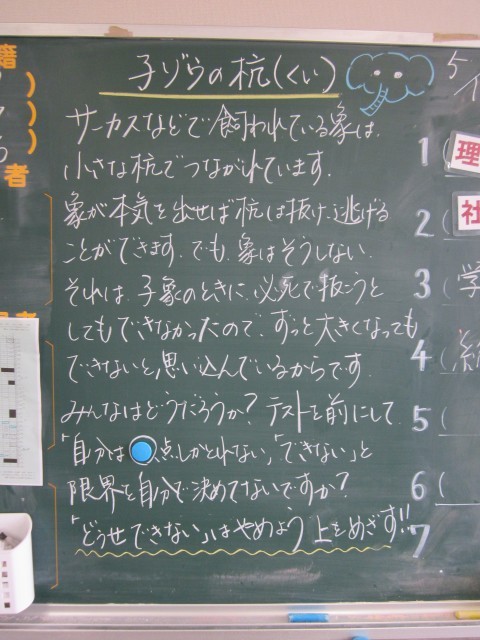 子ゾウの杭(くい)
サーカスなどで飼われている象は、
小さな杭でつながれています。
象が本気を出せば杭は抜け、逃げる
ことができます。でも、象はそうしない。
それは、子象のときに、必死で抜こうと
してもできなかったので、ずっと大きくなっても
できないと、思い込んでいるからです。
みんなはどうだろうか? テストを前にして
「自分は 点しかとれない」「できない」と
限界を自分で決めてないですか?
「どうせできない」はやめよう 上をめざす!!
籍
)
)
)
者
5
1 ( 理
2 ( 社
3 ( 学
4 (
5 (
6 (
7